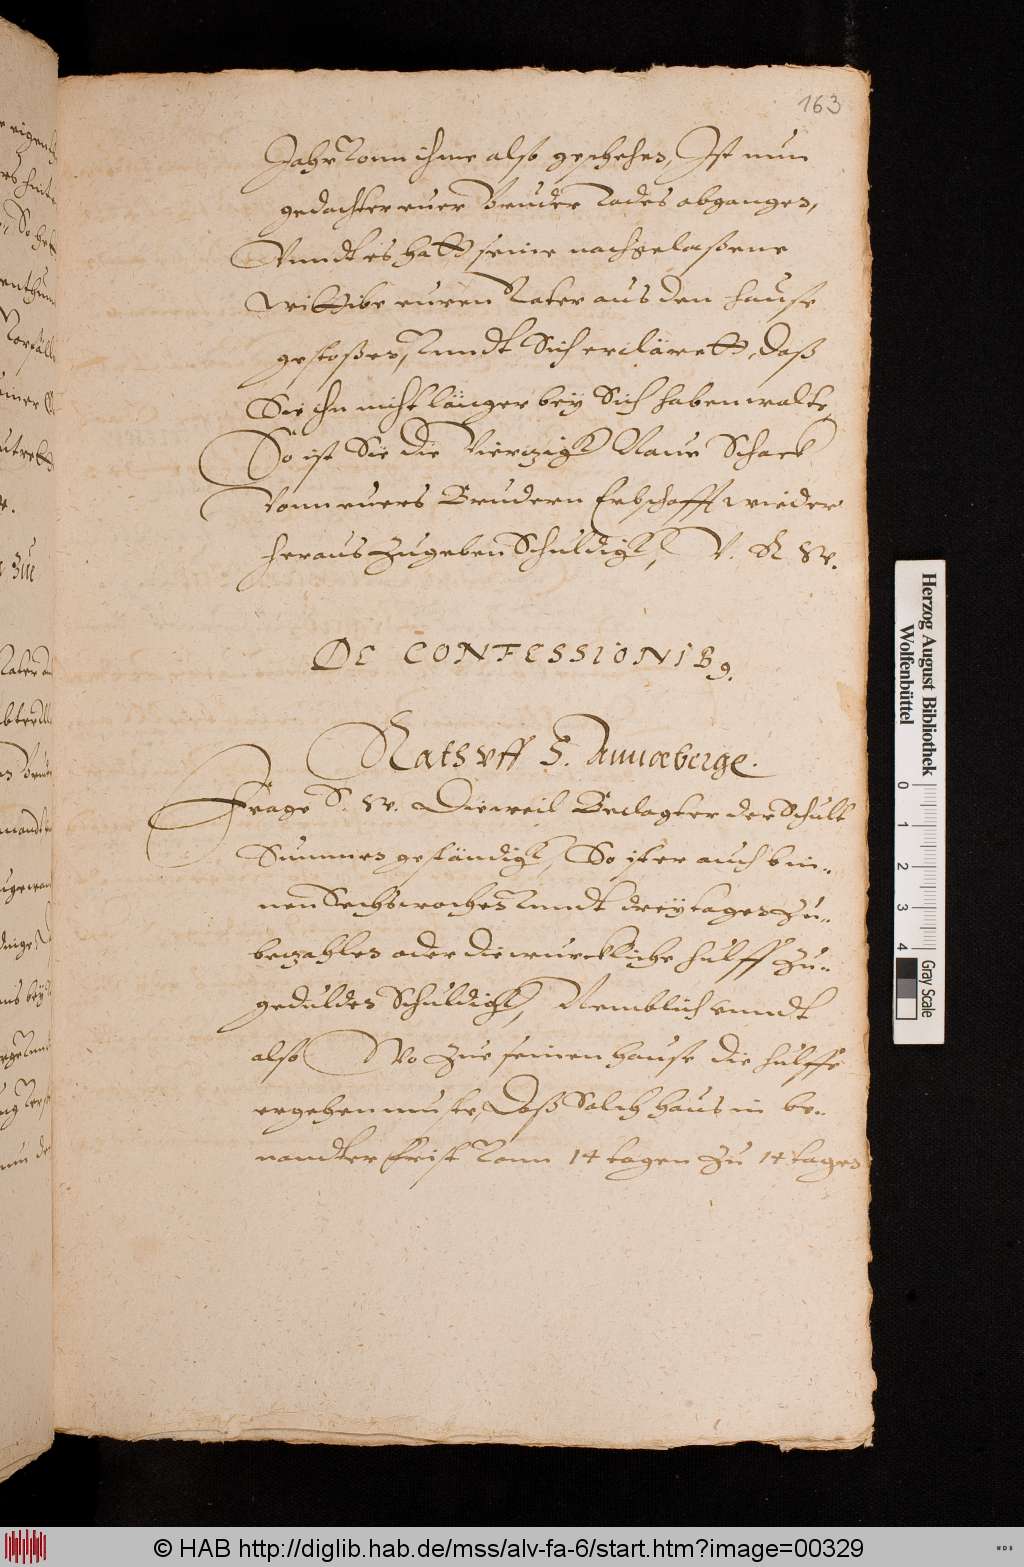 163
Jahr Vonn ihme also geschehen, Ist nun
gedachter euer Bruder Todes abgangen,
Vnndt es hatt seine nachgelaßene
wittibe euren Vater aus den hause
gestoßen, Vnndt Sich erclärett, daß
Sie ihn nicht länger bey Sich haben wolte,
So ist Sie die Vierzigk Naue Schock
Vonn euers Brudern Erbschafft wieder
heraus zugeben Schuldigk, V. R W.
DE CONFESSIONIB9.
Rats vff S. Annæberge.
Frage S. W. Dieweil Beclagter der Schult
Summen geständigk, So ist er auch bin-
nen Sechswochen Vnndt drey tagen zu-
bezahlen oder die wurckliche hulff zu-
gedulden Schuldigk, Nemblich vnndt
also Wo zue seinen hause die hulffe
ergehen muste, Daß Solch haus in be-
nandter Frist Vonn 14 tagen zu 14 tagen
Herzog August Bibliothek
Wolfenbüttel
0 1 2 3 4
Gray Scale
© HAB http://diglib.hab.de/mss/alv-fa-6/start.htm?image=00329